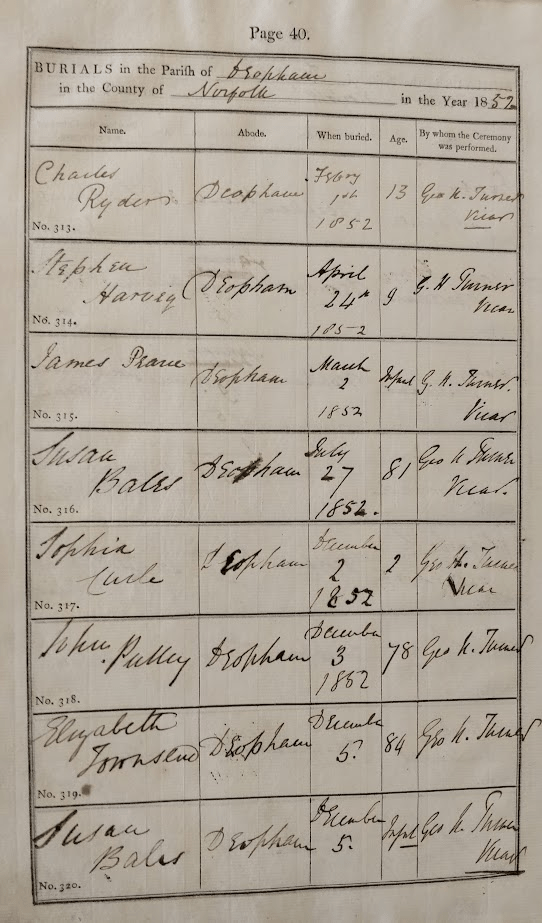 Page 40.
BURIALS in the Parish of Deopham
in the County of Norfolk in the Year 1852
Name. Abode. When buried. Age. By whom the Ceremony was performed.
Charles Ryders Deopham Febry 1st 1852 13 Geo H. Turner Vicar
No. 313.
Stephen Harvey Deopham April 24th 1852 9 G. H Turner Vicar
No. 314.
James Deopham March 2 1852 Infant G. H. Turner. Vicar
No. 315.
Susan Bales Deopham July 27 1852. 81 Geo H Turner Vicar.
No. 316.
Sophia Deopham December 2 1852 2 Geo H. Turner Vicar
No. 317.
John Pulley Deopham December 3 1852 78 Geo H. Turner
No. 318.
Elizabeth Townsend Deopham December 5. 84 Geo H. Turner
No. 319.
Susan Bales Deopham December 5. Infnt Geo H. Turner Vicar
No. 320.